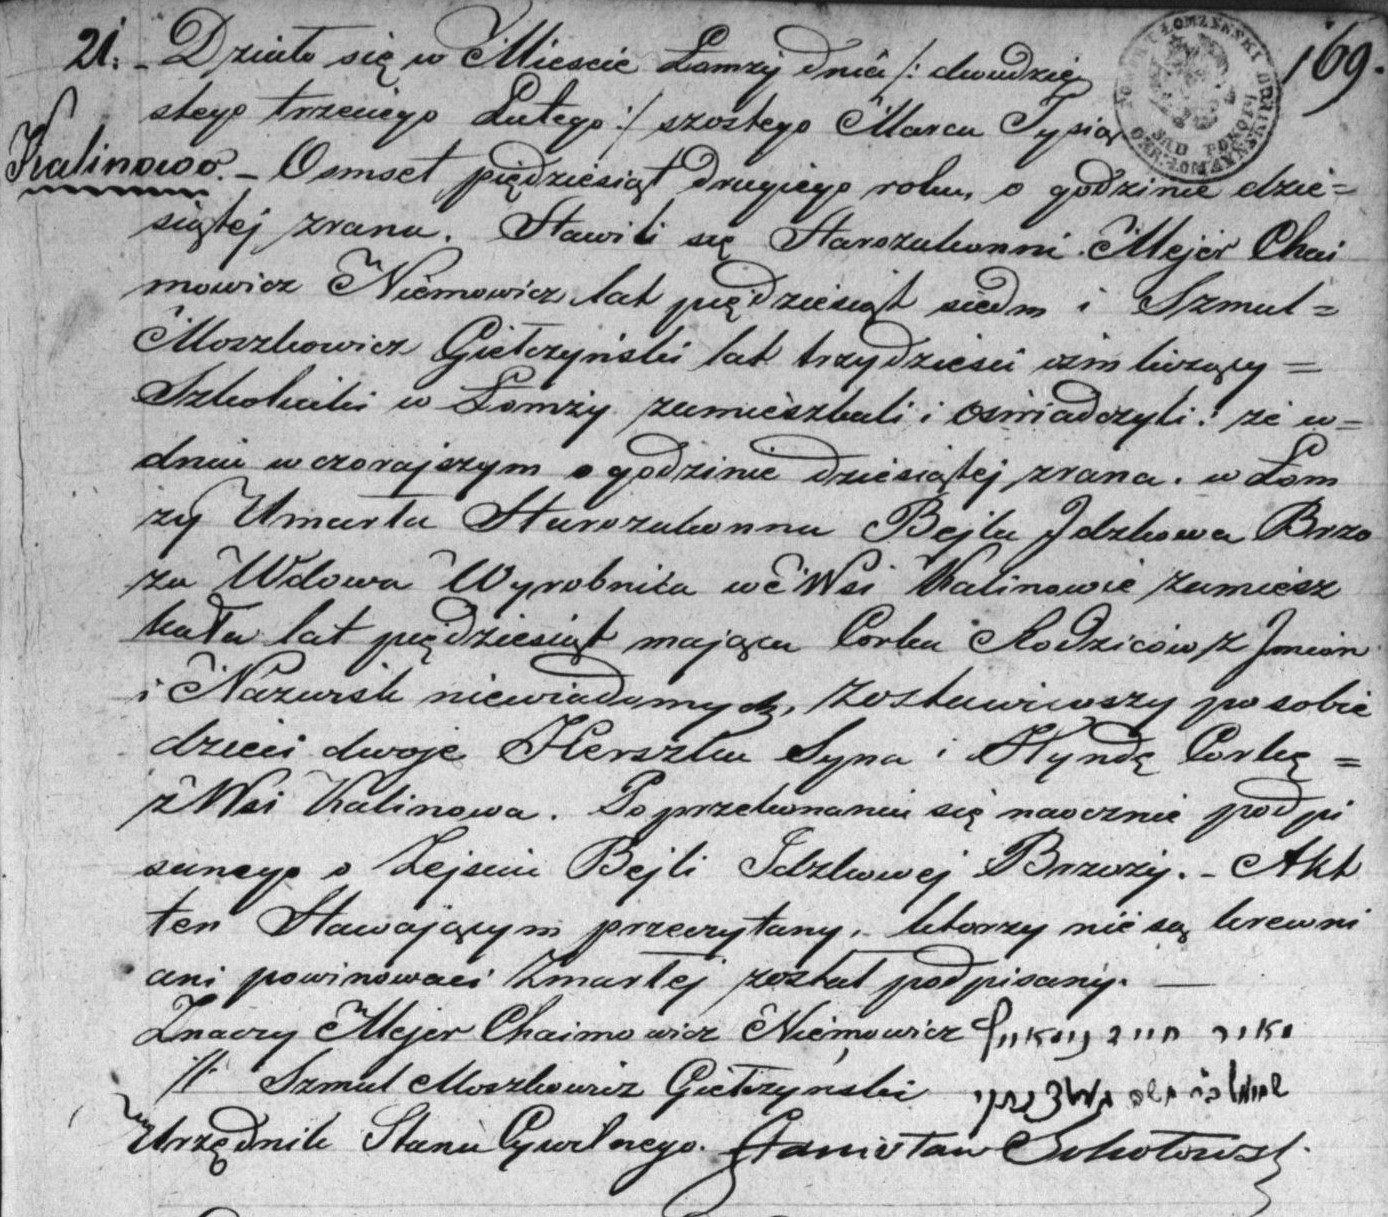 21. - Działo się w Mieście Łomży dnia /: dwudzie
169.
stego trzeciego Lutego :/ szostego Marca Tysiąc
Kalinowo. - Osmset pięćdziesiąt drugiego roku, o godzinie dzie=
siątej zrana. Stawili się Starozakonni Mejer Chai
mowicz Niemowicz lat pięćdziesiąt siedm i Szmul=
Moszkowicz Giełczyński lat trzydzieści ośm liczący =
Szkolniki w Łomży zamieszkali i oświadczyli: że w=
dniu wczorajszym o godzinie dziesiątej zrana. w Łom
ży Umarła Starozakonna Bejla Jdzkowa Brzo
za Wdowa Wyrobnica we Wsi Kalinowie zamiesz
kała lat pięćdziesiąt mająca Corka Rodziców z Jmion
i Nazwisk niewiadomych, zostawiwszy po sobie
dzieci dwoje Herszka Syna i Hyndę Corkę =
z Wsi Kalinowa. Po przekonaniu się naocznie podpi
sanego o Zejściu Bejli Jdzkowej Brzozy. - Akt
ten Stawającym przeczytany, ktorzy nie są krewni
ani powinowaci Zmarłej został podpisany. —
Znaczy Mejer Chaimowicz Niemowicz מאיר חיים
// Szmul Moszkowicz Giełczyński
Urzędnik Stanu Cywilnego. Stanisław Sokołowski